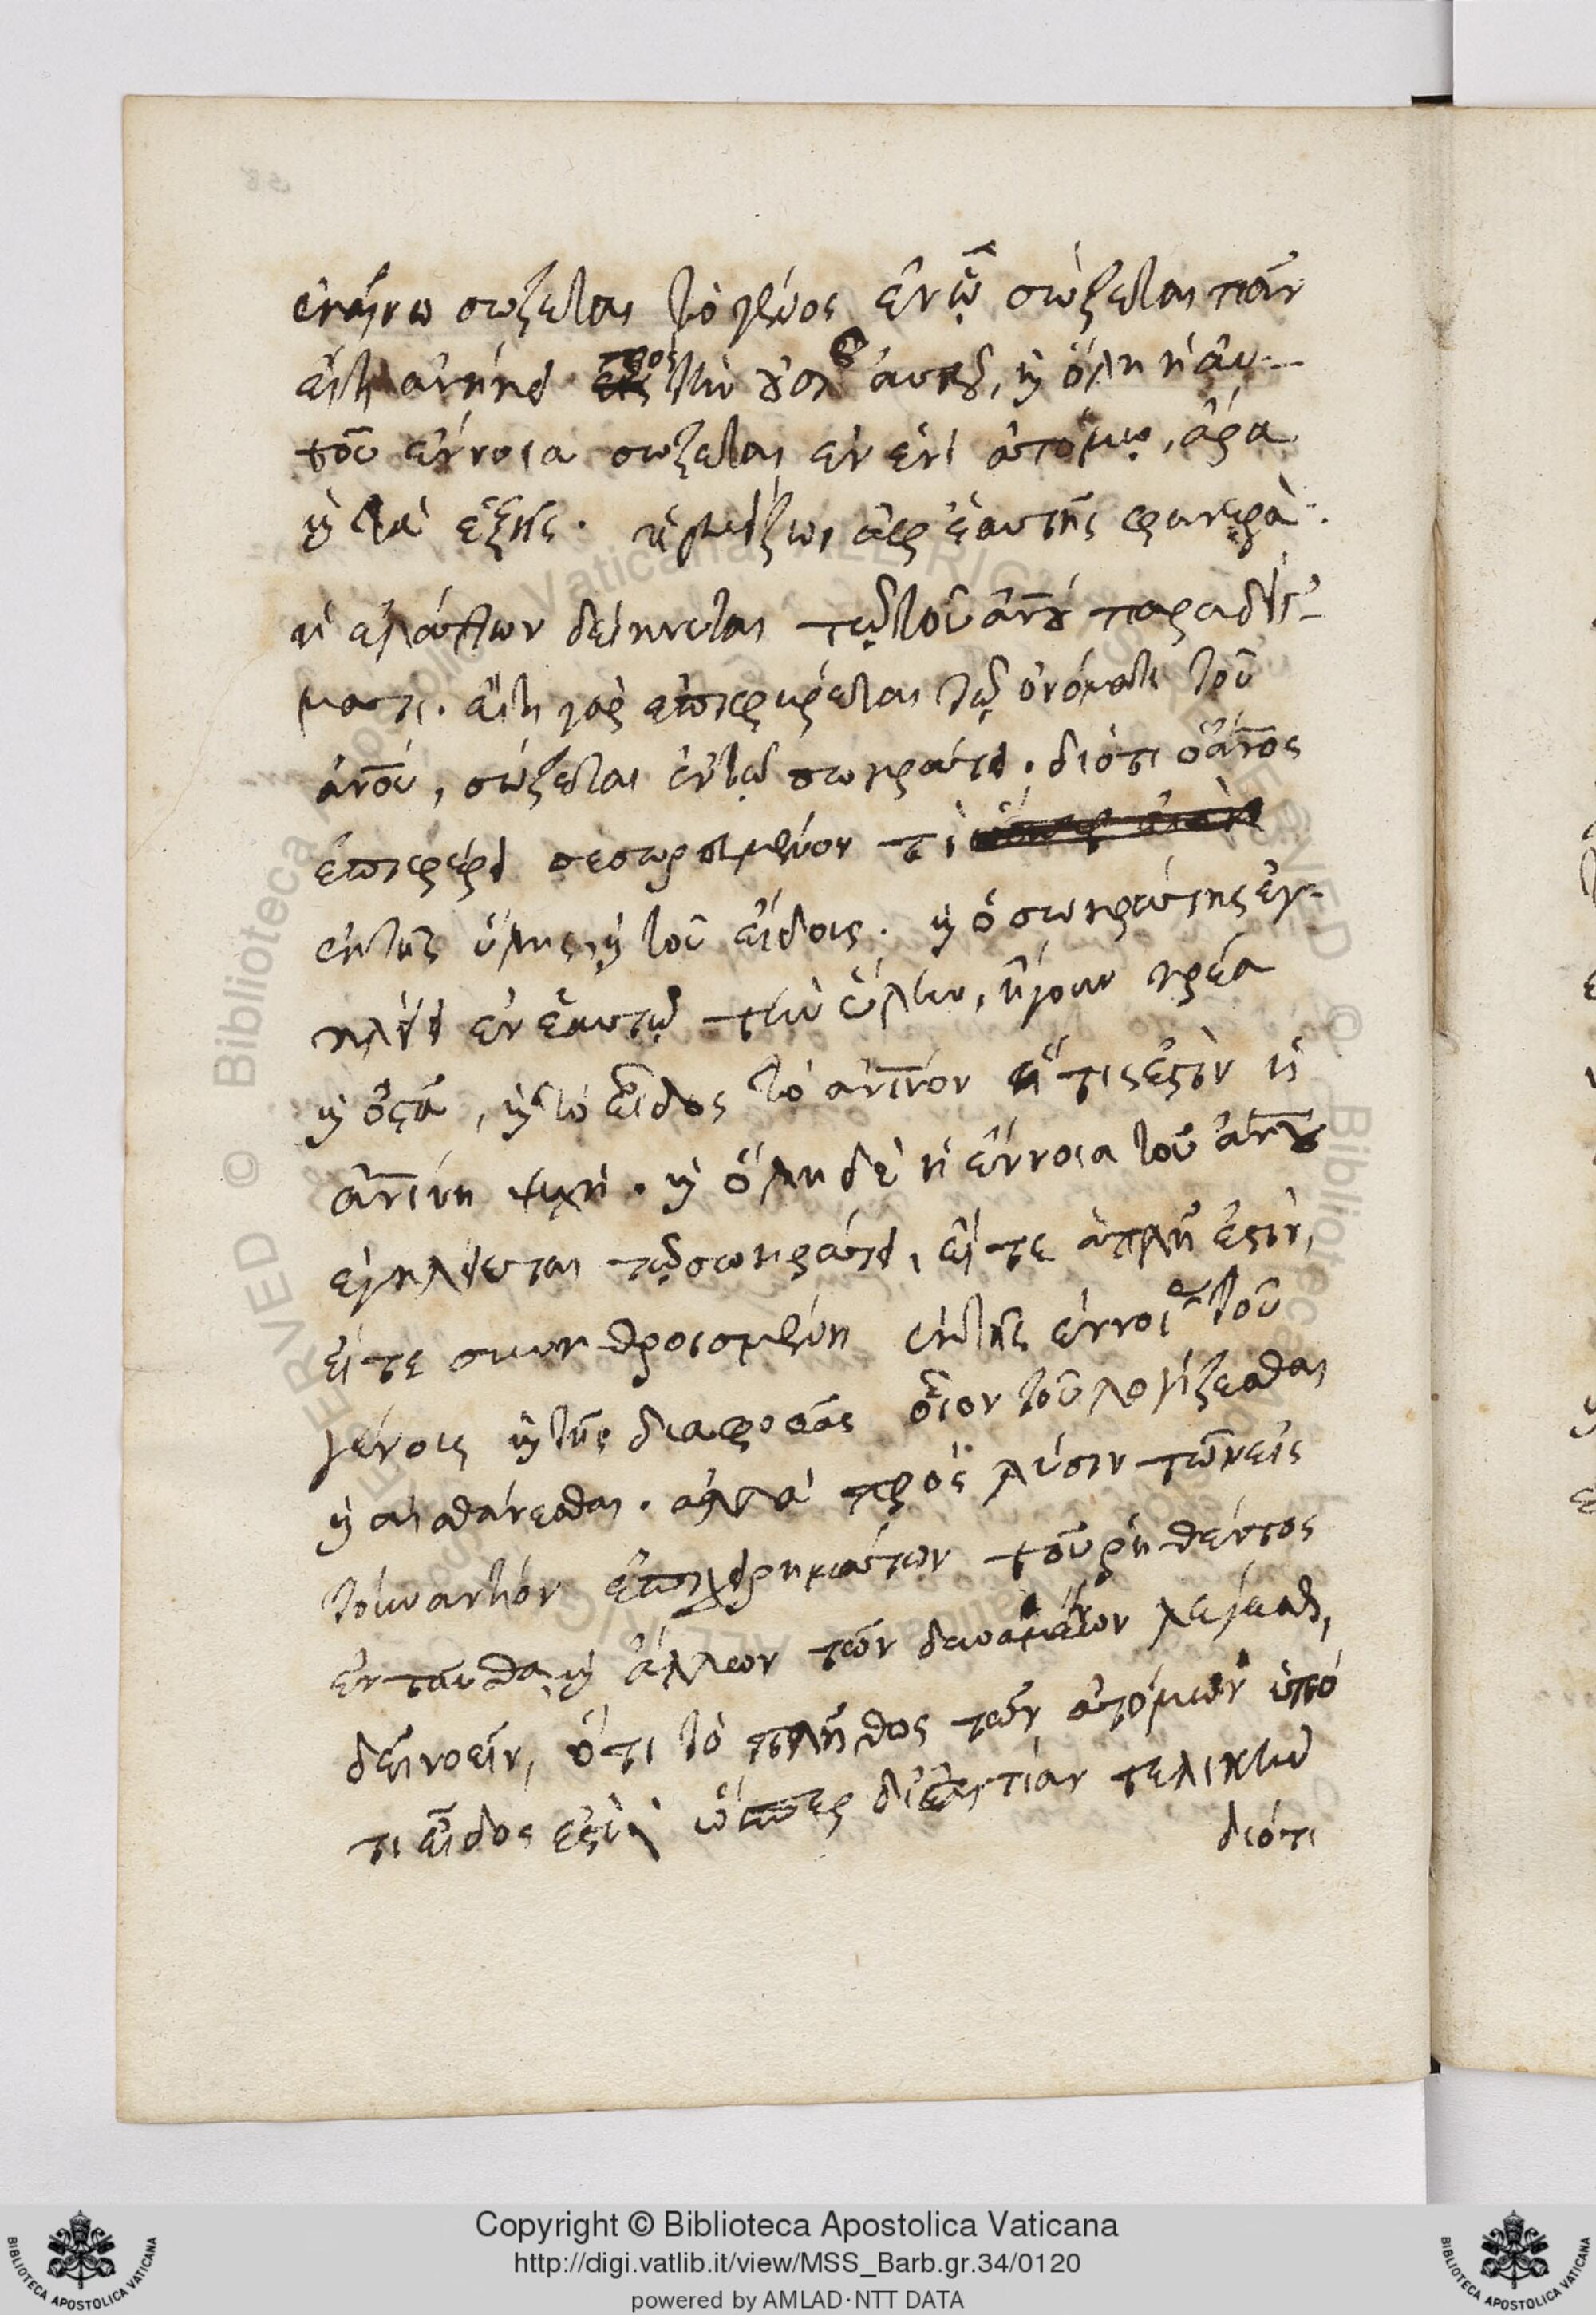 ἐκείνω σώζεται τὸ γένος ἐν ᾧ σώζεται πᾶν
ὅ,τι ἀνήκει πρὸς τὴν οὐσίαν αὐτοῦ, καὶ ὅλη ἡ αὐ-
τοῦ ἔννοια σώζεται ἐν ἑνὶ ἀτόμῳ, ἄρα
καὶ τὰ ἑξῆς. ἡ μείζων ἀφ' ἑαυτῆς φανερά.
ἡ ἐλάττων δείκνυται τῷ τοῦ ἀνου παραδείγ-
ματι. ὅ,τι γὰρ ἐπιφέρεται τῷ ὀνόματι τοῦ
ἀνου, σώζεται ἐν τῷ σωκράτει. διότι ὁ ἀνος
ἐπιφέρει σεσωρευμένον τὶ
ἐκ τῆς ὕλης καὶ τοῦ εἴδους. καὶ ὁ σωκράτης ἐγ-
κλείει ἐν ἑαυτῷ τὴν ὕλην, ἤγουν κρέα
καὶ ὀστᾶ, καὶ τὸ εἶδος τὸ ἀνινον ἥτις ἐστὶν ἡ
ἀνινη ψυχή. καὶ ὅλη δὲ ἡ ἔννοια τοῦ ἀνου
ἐγκλείεται τῷ σωκράτει, εἴτε ἁπλῆ ἐστιν,
εἴτε συνηθροισμένη ἐκ τῆς ἐννοίας τοῦ
γένους καὶ τῆς διαφορᾶς οἷον τοῦ λογίζεσθαι
καὶ αἰσθάνεσθαι. ἀλλὰ πρὸς λύσιν τῶν εἰς
τοὐναντίον ἐπιχειρημάτων τοῦ ῥηθέντος
ἐνταῦθα, καὶ ἄλλων τῶν δυναμένων λέγεσθαι,
δεῖ νοεῖν, ὅτι τὸ πλῆθος τῶν ἀτόμων ὑπό
τι εἶδος ἐστὶν ὥσπερ δι' αἰτίαν τελικὴν
διότι
Copyright © Biblioteca Apostolica Vaticana
http://digi.vatlib.it/view/MSS_Barb.gr.34/0120
powered by AMLAD·NTT DATA